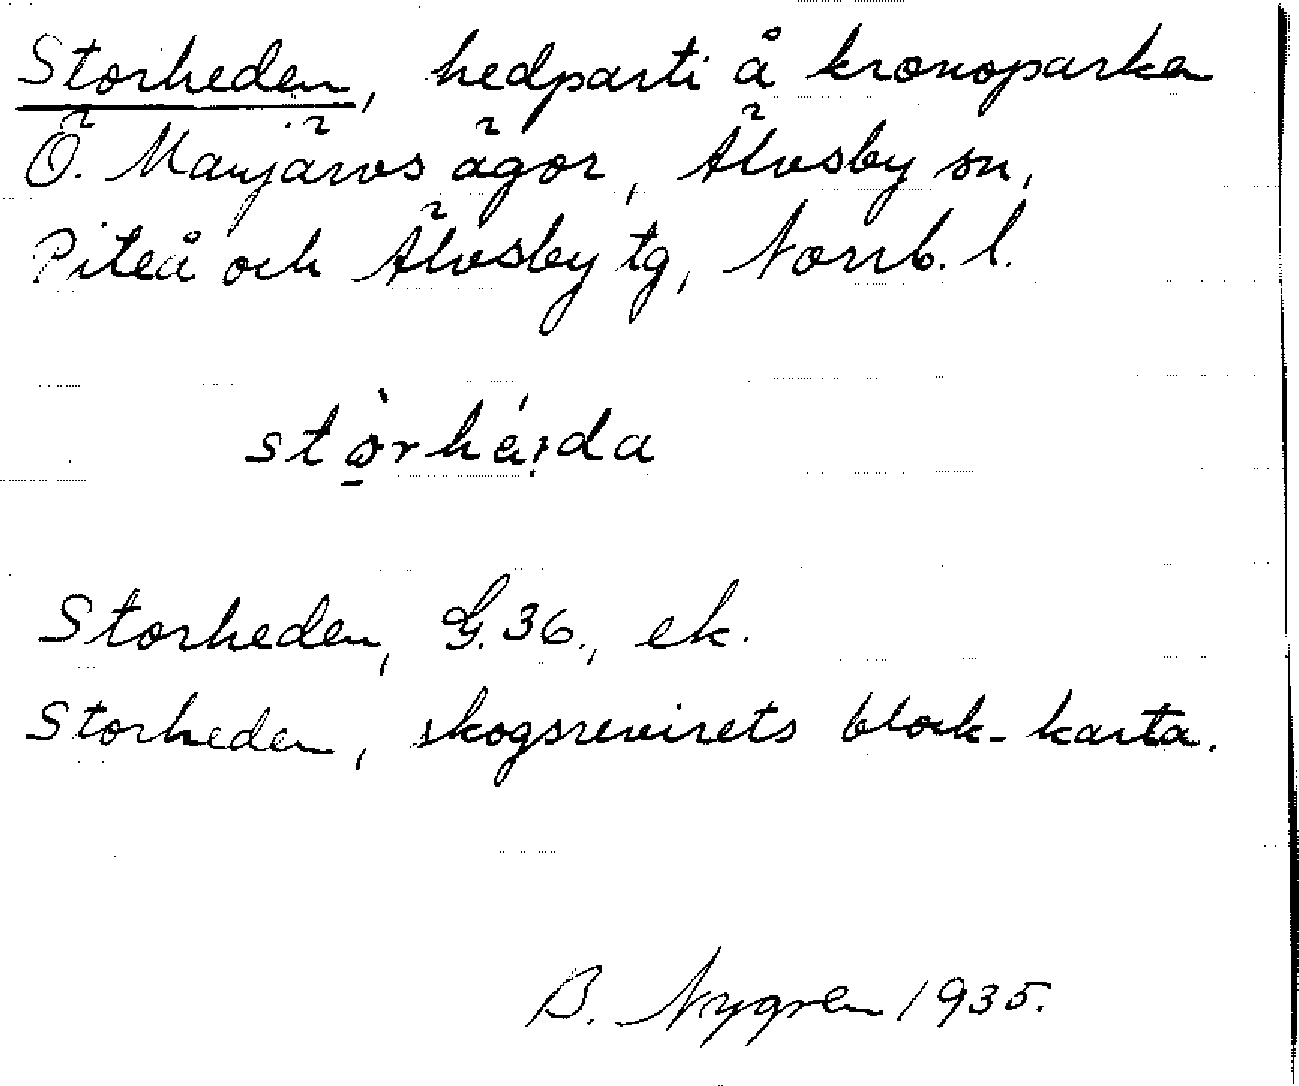 Storheden, hedparti å kronoparken
Ö. Manjärvs ägor, Älvsby sn,
Piteå och Älvsby tg, Norrb. l.
Storheden, G. 36., ek.
Storheden, skogsrevirets block-karta.
B. Nygren 1935.